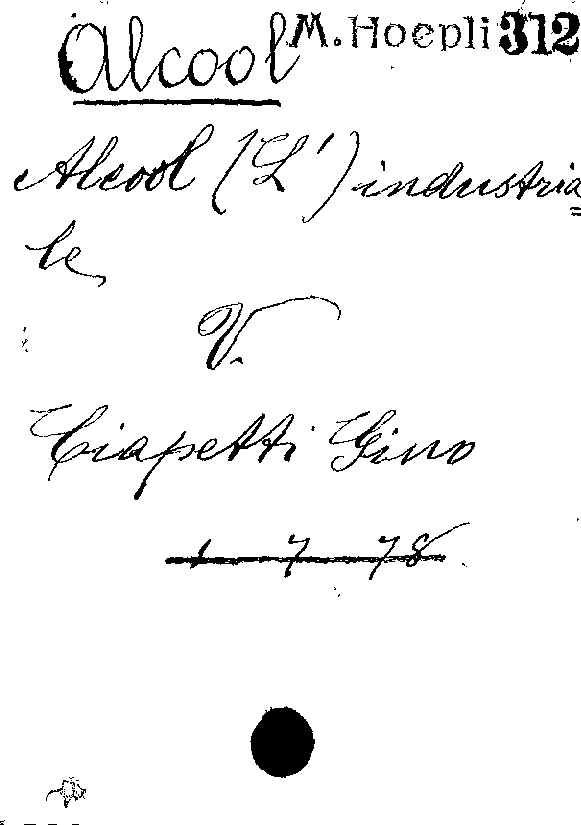 Alcool M. Hoepli 312
Alcool (L') industria=
le
V.
Ciapetti Gino
1 7 78